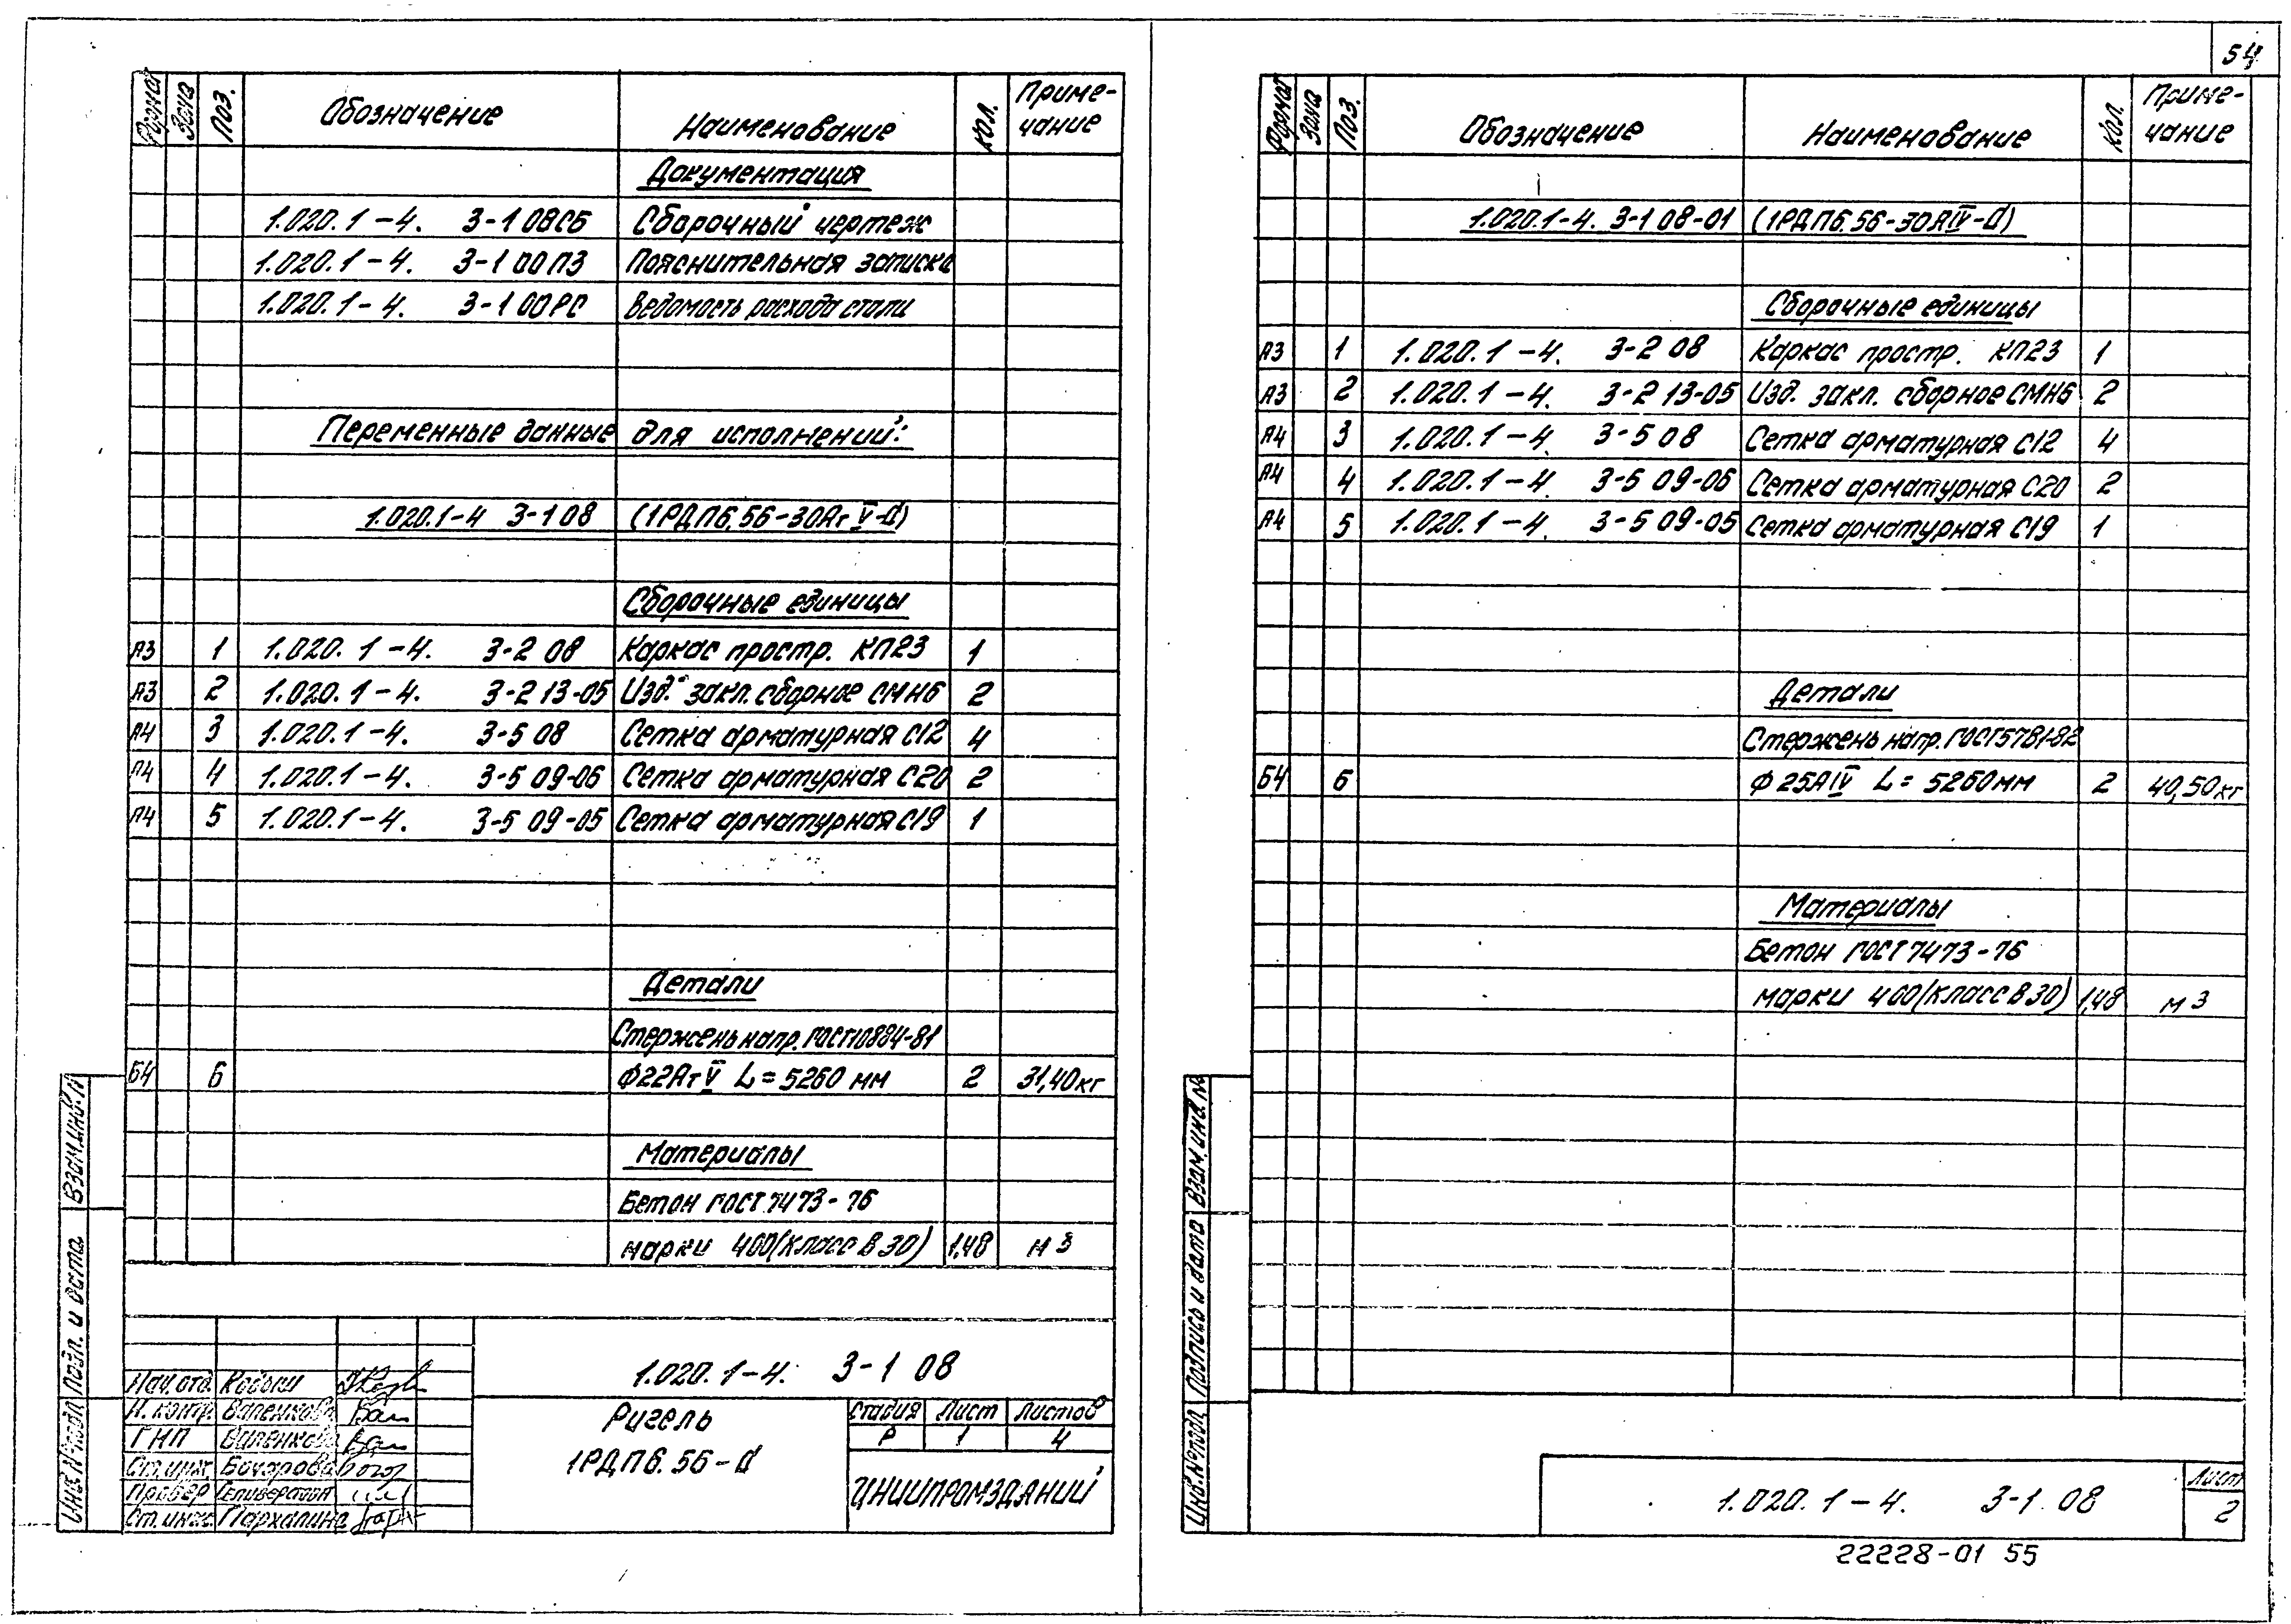 Формат Зона Поз. Обозначение Наименование Кол. Приме-
чание
Документация
1.020.1-4. 3-1 08СБ Сборочный чертеж
1.020.1-4. 3-1 00ПЗ Пояснительная записка
1.020.1-4. 3-1 00РС Ведомость расхода стали
Переменные данные для исполнений:
1.020.1-4 3-1 08 (1РДП6.56-30АтV-d)
Сборочные единицы
А3 1 1.020.1-4. 3-2 08 Каркас простр. КП23 1
А3 2 1.020.1-4. 3-2 13-05 Изд. закл. сборное СМН6 2
А4 3 1.020.1-4. 3-5 08 Сетка арматурная С12 4
А4 4 1.020.1-4. 3-5 09-06 Сетка арматурная С20 2
А4 5 1.020.1-4. 3-5 09-05 Сетка арматурная С19 1
Детали
Стержень напр. ГОСТ10884-81
Б4 6 Ф22АтV L=5260 мм 2 31,40кг
Материалы
Бетон ГОСТ 7473-76
марки 400(Класс В30) 1,48 м3
Взам.инв.№
Подп. и дата
Инв.№подл.
1.020.1-4. 3-1 08
Нач.отд. Кодыш
Н. контр. Валенкова
ГИП Валенкова
Ст.инж. Бочарова
Провер
Ст.инж. Пархалина
Ригель
1РДП6.56-d
Стадия Лист Листов
Р 1 4
ЦНИИПРОМЗДАНИЙ
54
Формат Зона Поз. Обозначение Наименование Кол. Приме-
чание
1.020.1-4. 3-1 08-01 (1РДП6.56-30АIV-d)
Сборочные единицы
А3 1 1.020.1-4. 3-2 08 Каркас простр. КП23 1
А3 2 1.020.1-4. 3-2 13-05 Изд. закл. сборное СМН6 2
А4 3 1.020.1-4. 3-5 08 Сетка арматурная С12 4
А4 4 1.020.1-4. 3-5 09-06 Сетка арматурная С20 2
А4 5 1.020.1-4. 3-5 09-05 Сетка арматурная С19 1
Детали
Стержень напр. ГОСТ5781-82
Б4 6 Ф25АIV L=5260мм 2 40,50кг
Материалы
Бетон ГОСТ 7473-76
марки 400(Класс В30) 1,48 м3
Взам.инв.№
Подпись и дата
Инв.№подл.
1.020.1-4. 3-1. 08
Лист
2
22228-01 55